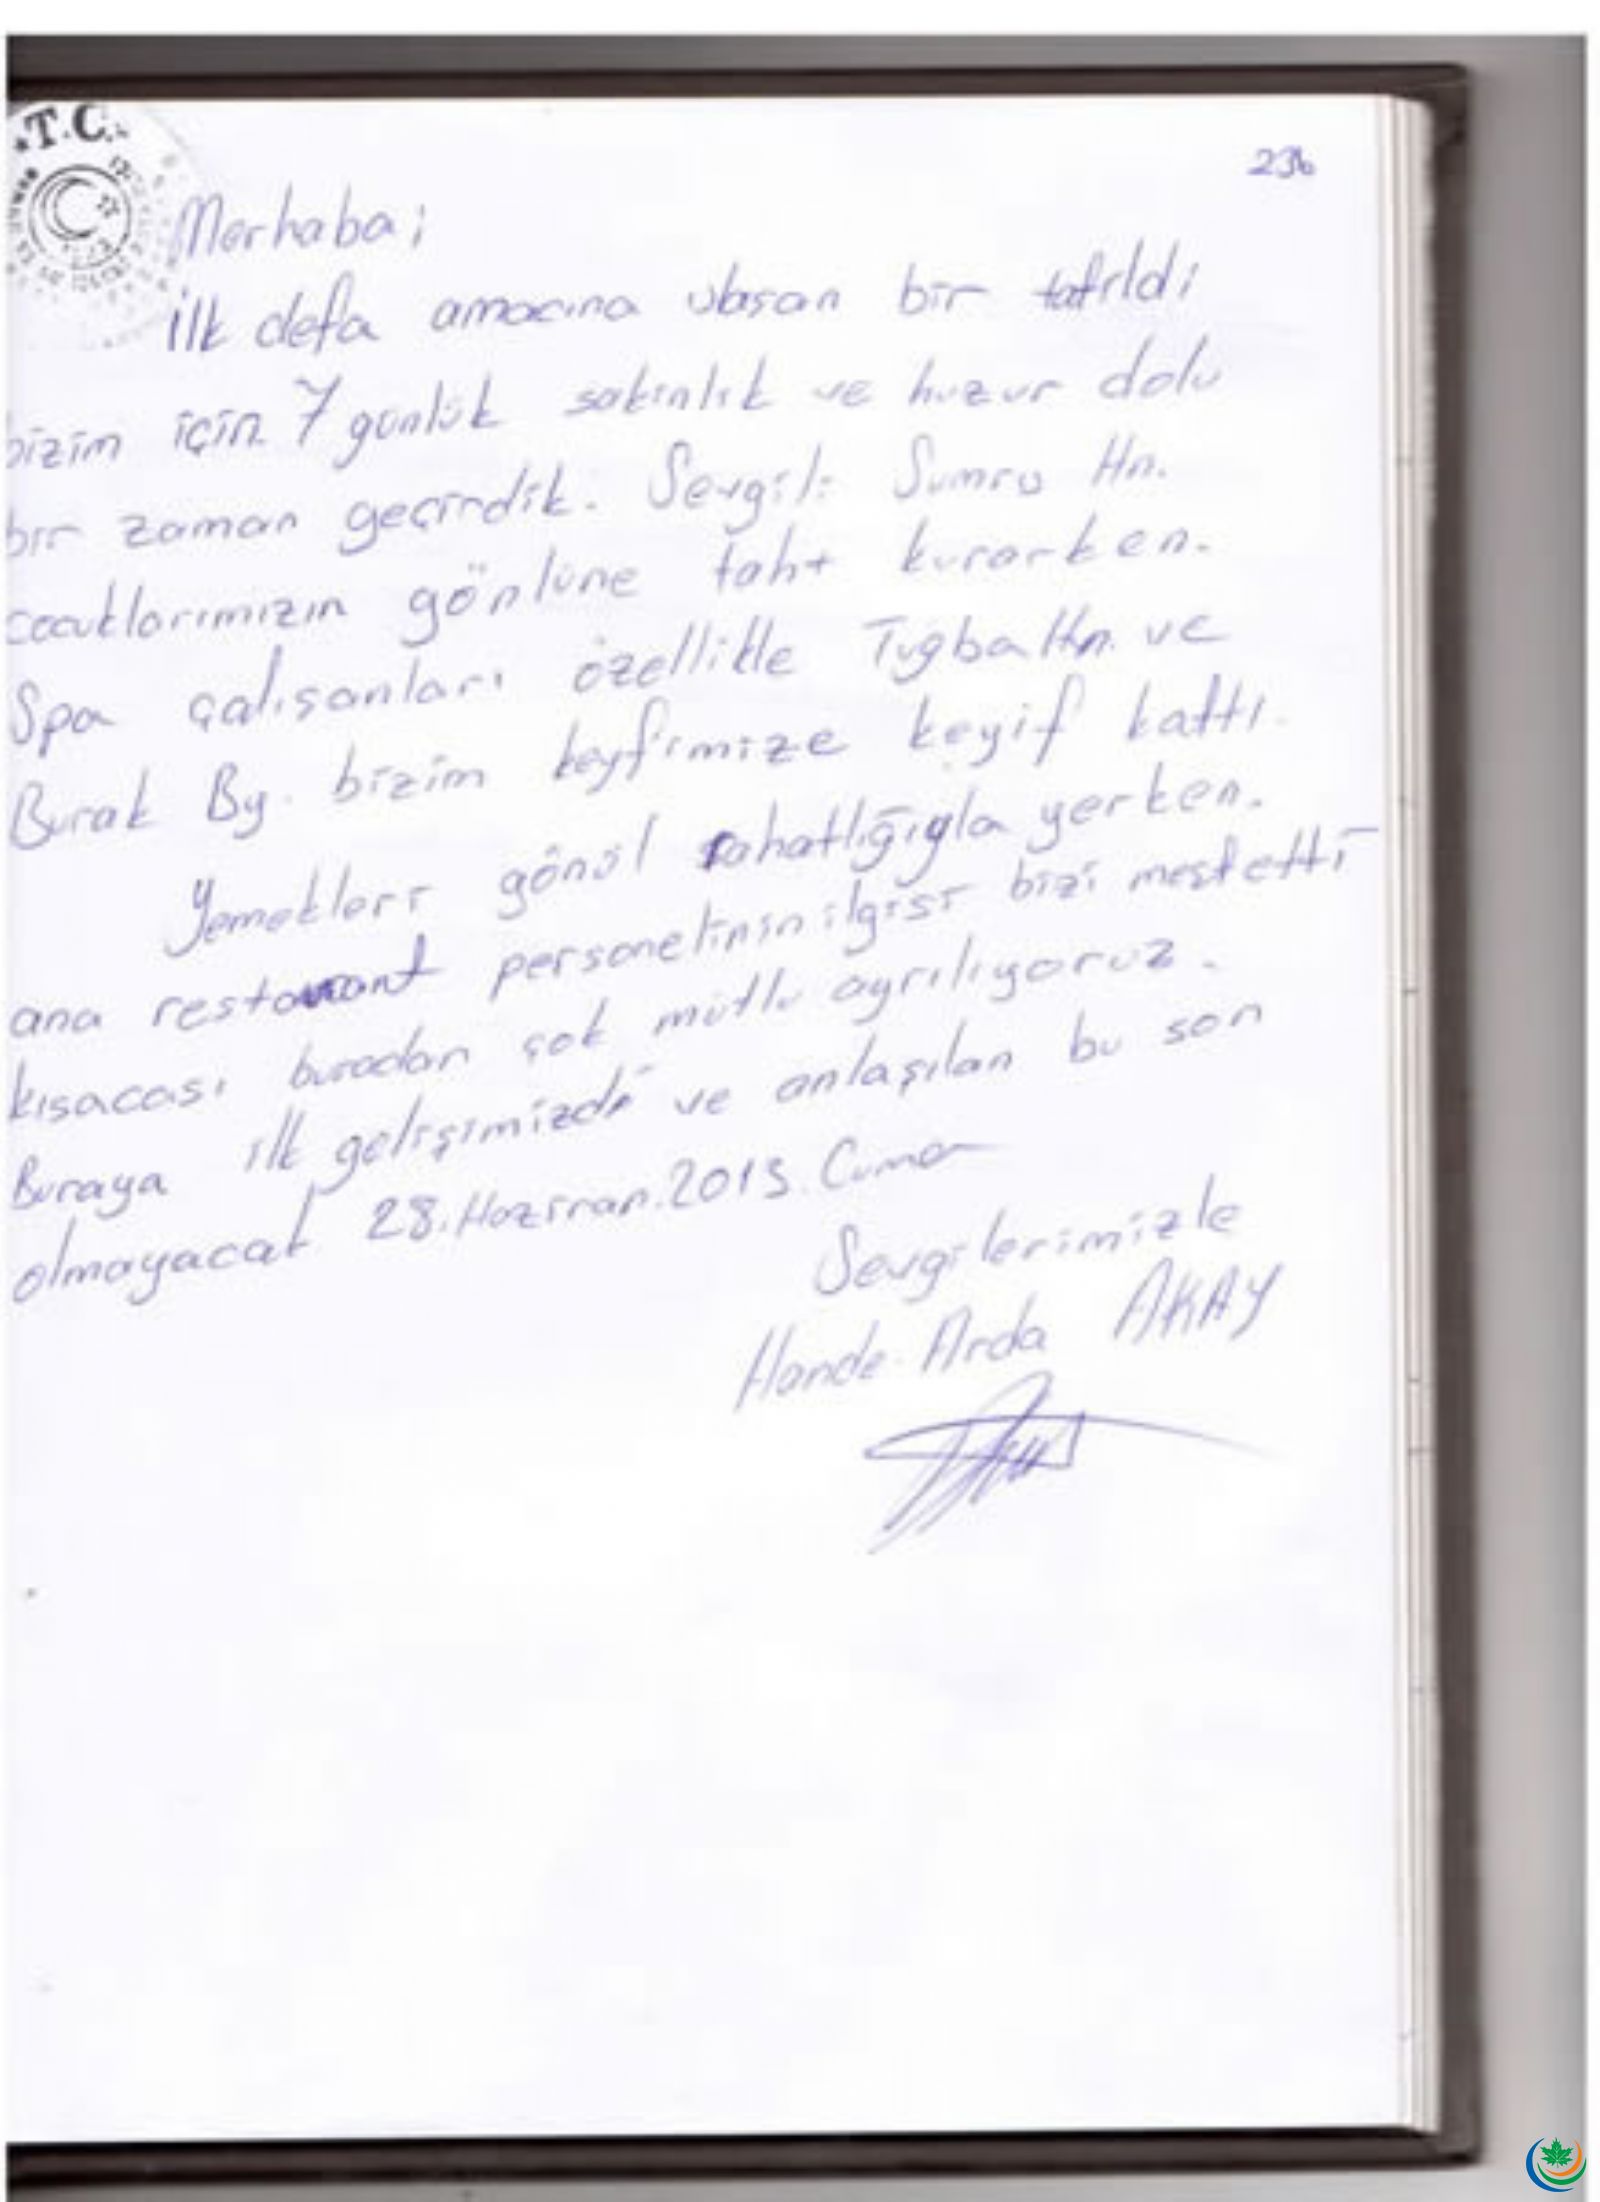 T.C.
236
Merhaba;
ilk defa amacına ulaşan bir tatildi
bizim için 7 günlük sakinlik ve huzur dolu
bir zaman geçirdik. Sevgili Sumru Hn.
çocuklarımızın gönlüne taht kurarken.
Spa çalışanları özellikle Tuğba Hn. ve
Burak By. bizim keyfimize keyif kattı.
Yemekleri gönül rahatlığıyla yerken.
ana restaurant personelinin ilgisi bizi mest etti
kısacası buradan çok mutlu ayrılıyoruz.
Buraya ilk gelişimizdi ve anlaşılan bu son
olmayacak 28.Haziran.2013.Cuma
Sevgilerimizle
Hande-Arda AKAY